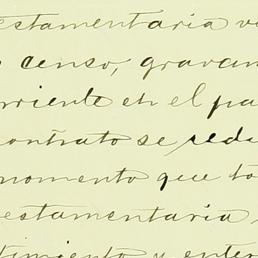 estamentaria v
censo, gravam
rriente en el pa
contrato se redu
momento que to
estamentaria
timiento y enter